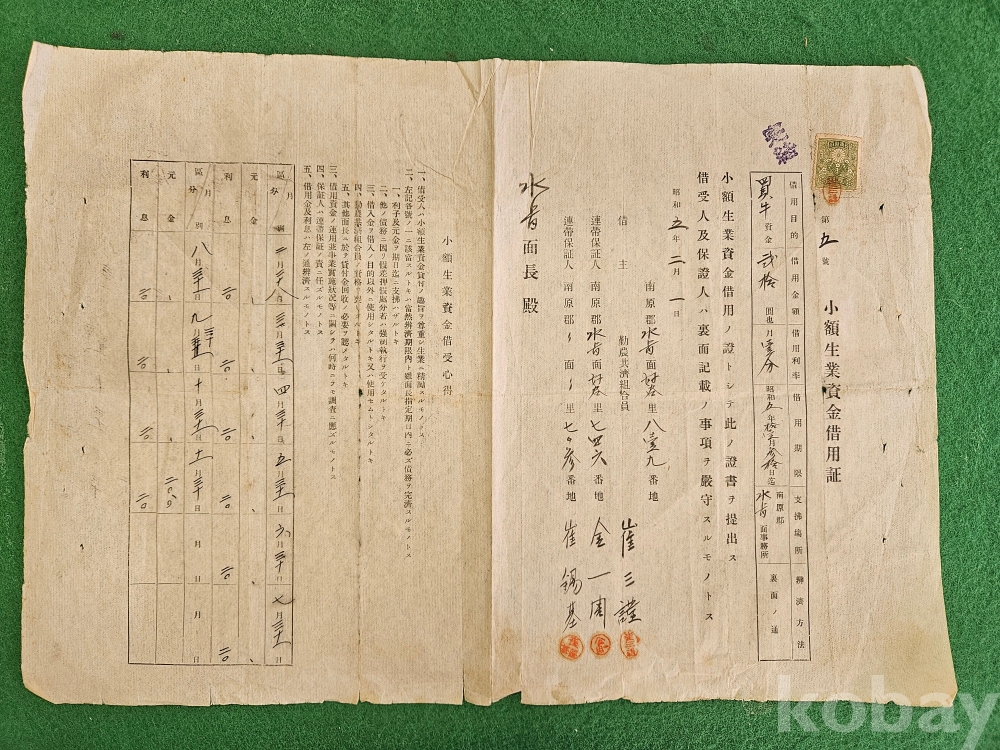 第五號
小額生業資金借用証
借用目的 借用金額 借用利率 借用期限 支拂場所 辨濟方法
買牛資金 貳拾圓也 月壹分 昭和五年 日迄 南原郡水旨面事務所 裏面ノ通
小額生業資金借用ノ證トシテ此ノ證書ヲ提出ス
借受人及保證人ハ裏面記載ノ事項ヲ嚴守スルモノトス
昭和五年二月一日
勸農共濟組合員
借主 南原郡水旨面 里八壹九番地 崔三
連帶保証人 南原郡水旨面 里七四六番地 金一周
連帶保証人 南原郡〃面〃里七〇參番地 崔錫基
水旨面長殿
小額生業資金借受心得
一、借受人ハ小額生業資金貸付ノ趣旨ヲ尊重シ生業ニ精勵スルモノトス
二、左記各號ノ一ニ該當スルトキハ當然辨濟期限內ト雖面長指定期日內ニ必ズ債務ヲ完濟スルモノトス
一、利子及元金ヲ期日迄ニ支拂ハザルトキ
二、他ノ債務ニ因リ假差押假處分若ハ强制執行ヲ受ケタルトキ
三、借入金ヲ借入ノ目的以外ニ使用シタルトキ又ハ使用セムトシタルトキ
四、勸農共濟組合員ノ資格ヲ喪リタルトキ
五、其他面長ニ於テ貸付金回收ノ必要ヲ認メタルトキ
三、借用資金ノ運用並事業實施狀況等ニ關シテハ何時ニテモ調査ニ應ズルモノトス
四、保証人ハ連帶保証ノ責ニ任ズルモノトス
五、借用金及利息ハ左ノ通辨濟スルモノトス
區分 月別 二月二十八日 三月三十一日 四月三十日 五月三十一日 六月三十日 七月三十一日
元金
利息 二〇 二〇 二〇 二〇
區分 月別 八月三十一日 九月三十日 十月三十一日 十一月三十日 月 日 月 日
元金 二〇、〇
利息 二〇 二〇 二〇 二〇
kobay